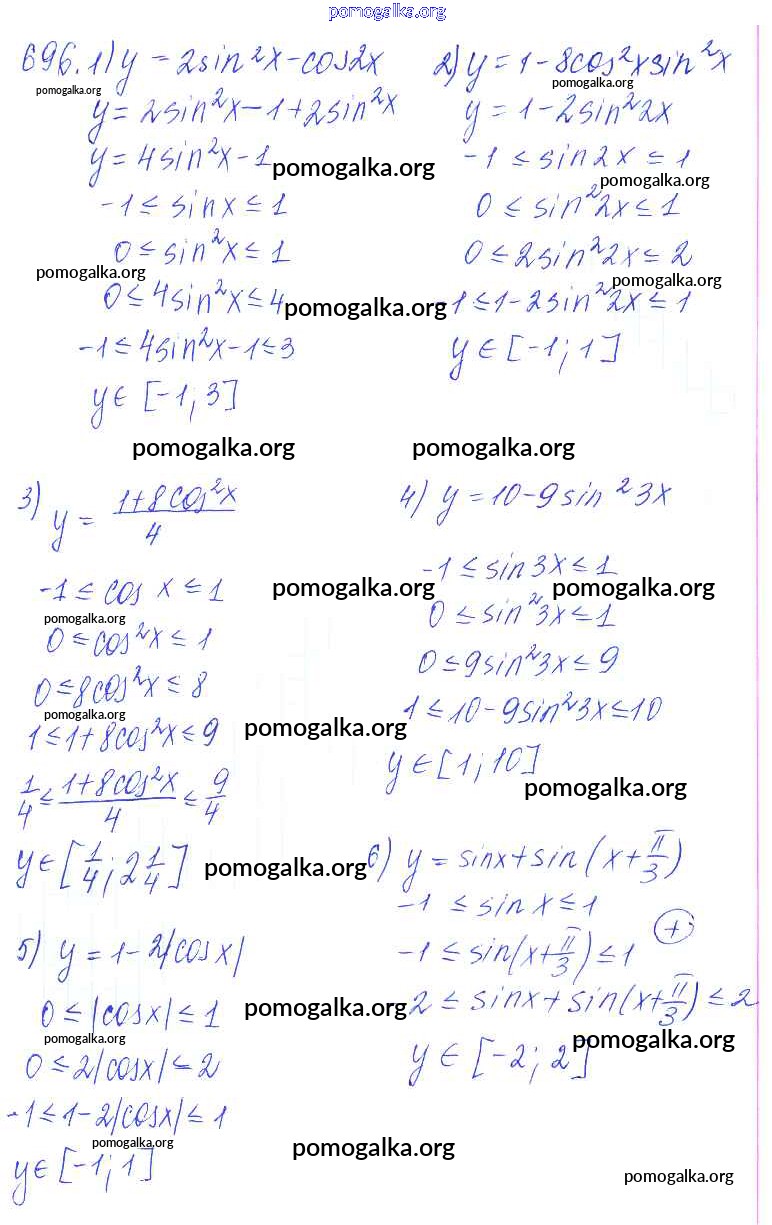 pomogalka.org
696. 1) y = 2sin²x - cos2x
pomogalka.org
y = 2sin²x - 1 + 2sin²x
y = 4sin²x - 1
pomogalka.org
-1 ≤ sinx ≤ 1
0 ≤ sin²x ≤ 1
pomogalka.org
0 ≤ 4sin²x ≤ 4
pomogalka.org
-1 ≤ 4sin²x - 1 ≤ 3
y ∈ [-1, 3]
pomogalka.org
2) y = 1 - 8cos²x sin²x
pomogalka.org
y = 1 - 2sin²2x
-1 ≤ sin2x ≤ 1
pomogalka.org
0 ≤ sin²2x ≤ 1
0 ≤ 2sin²2x ≤ 2
pomogalka.org
-1 ≤ 1 - 2sin²2x ≤ 1
y ∈ [-1; 1]
pomogalka.org
3) y = (1 + 8cos²x)/4
-1 ≤ cos x ≤ 1
pomogalka.org
pomogalka.org
0 ≤ cos²x ≤ 1
0 ≤ 8cos²x ≤ 8
pomogalka.org
1 ≤ 1 + 8cos²x ≤ 9
pomogalka.org
1/4 ≤ (1 + 8cos²x)/4 ≤ 9/4
y ∈ [1/4; 2 1/4]
pomogalka.org
4) y = 10 - 9sin²3x
-1 ≤ sin3x ≤ 1
pomogalka.org
0 ≤ sin²3x ≤ 1
0 ≤ 9sin²3x ≤ 9
1 ≤ 10 - 9sin²3x ≤ 10
y ∈ [1; 10]
pomogalka.org
5) y = 1 - 2|cosx|
0 ≤ |cosx| ≤ 1
pomogalka.org
pomogalka.org
0 ≤ 2|cosx| ≤ 2
-1 ≤ 1 - 2|cosx| ≤ 1
pomogalka.org
y ∈ [-1; 1]
6) y = sinx + sin(x + π/3)
-1 ≤ sinx ≤ 1
+
-1 ≤ sin(x + π/3) ≤ 1
-2 ≤ sinx + sin(x + π/3) ≤ 2
pomogalka.org
y ∈ [-2; 2]
pomogalka.org
pomogalka.org